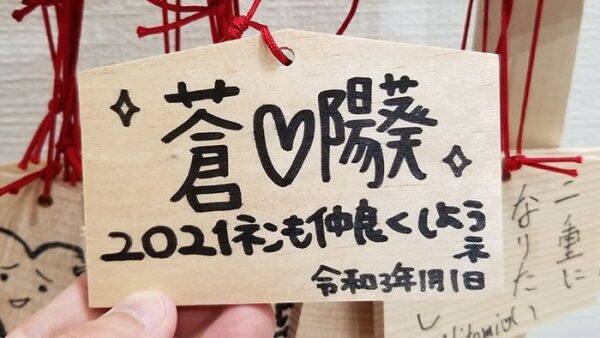 蒼♡陽葵
2021ネンも仲良くしよう
ネ
令和3年1月1日
二重に
なりたい
し